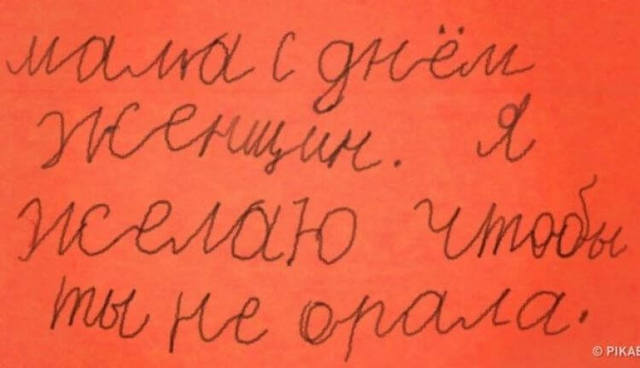 мама с днём
женщин. Я
желаю чтобы
ты не орала.
© PIKAB